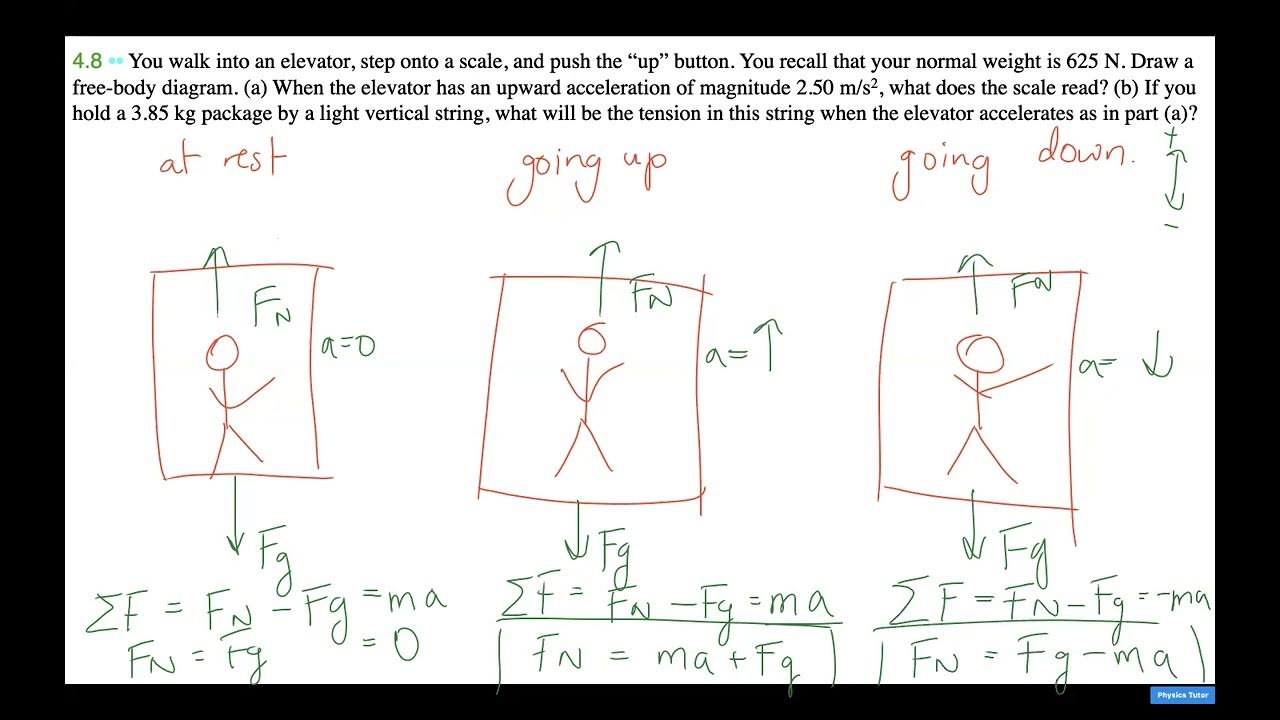 4.8 •• You walk into an elevator, step onto a scale, and push the “up” button. You recall that your normal weight is 625 N. Draw a
free-body diagram. (a) When the elevator has an upward acceleration of magnitude 2.50 m/s², what does the scale read? (b) If you
hold a 3.85 kg package by a light vertical string, what will be the tension in this string when the elevator accelerates as in part (a)?
at rest
going up
going down.
+
-
FN
a=0
FN
a=↑
FN
a=↓
Fg
Fg
Fg
ΣF = FN - Fg = ma
= 0
FN = Fg
ΣF = FN - Fg = ma
FN = ma + Fg
ΣF = FN - Fg = -ma
FN = Fg - ma
Physics Tutor